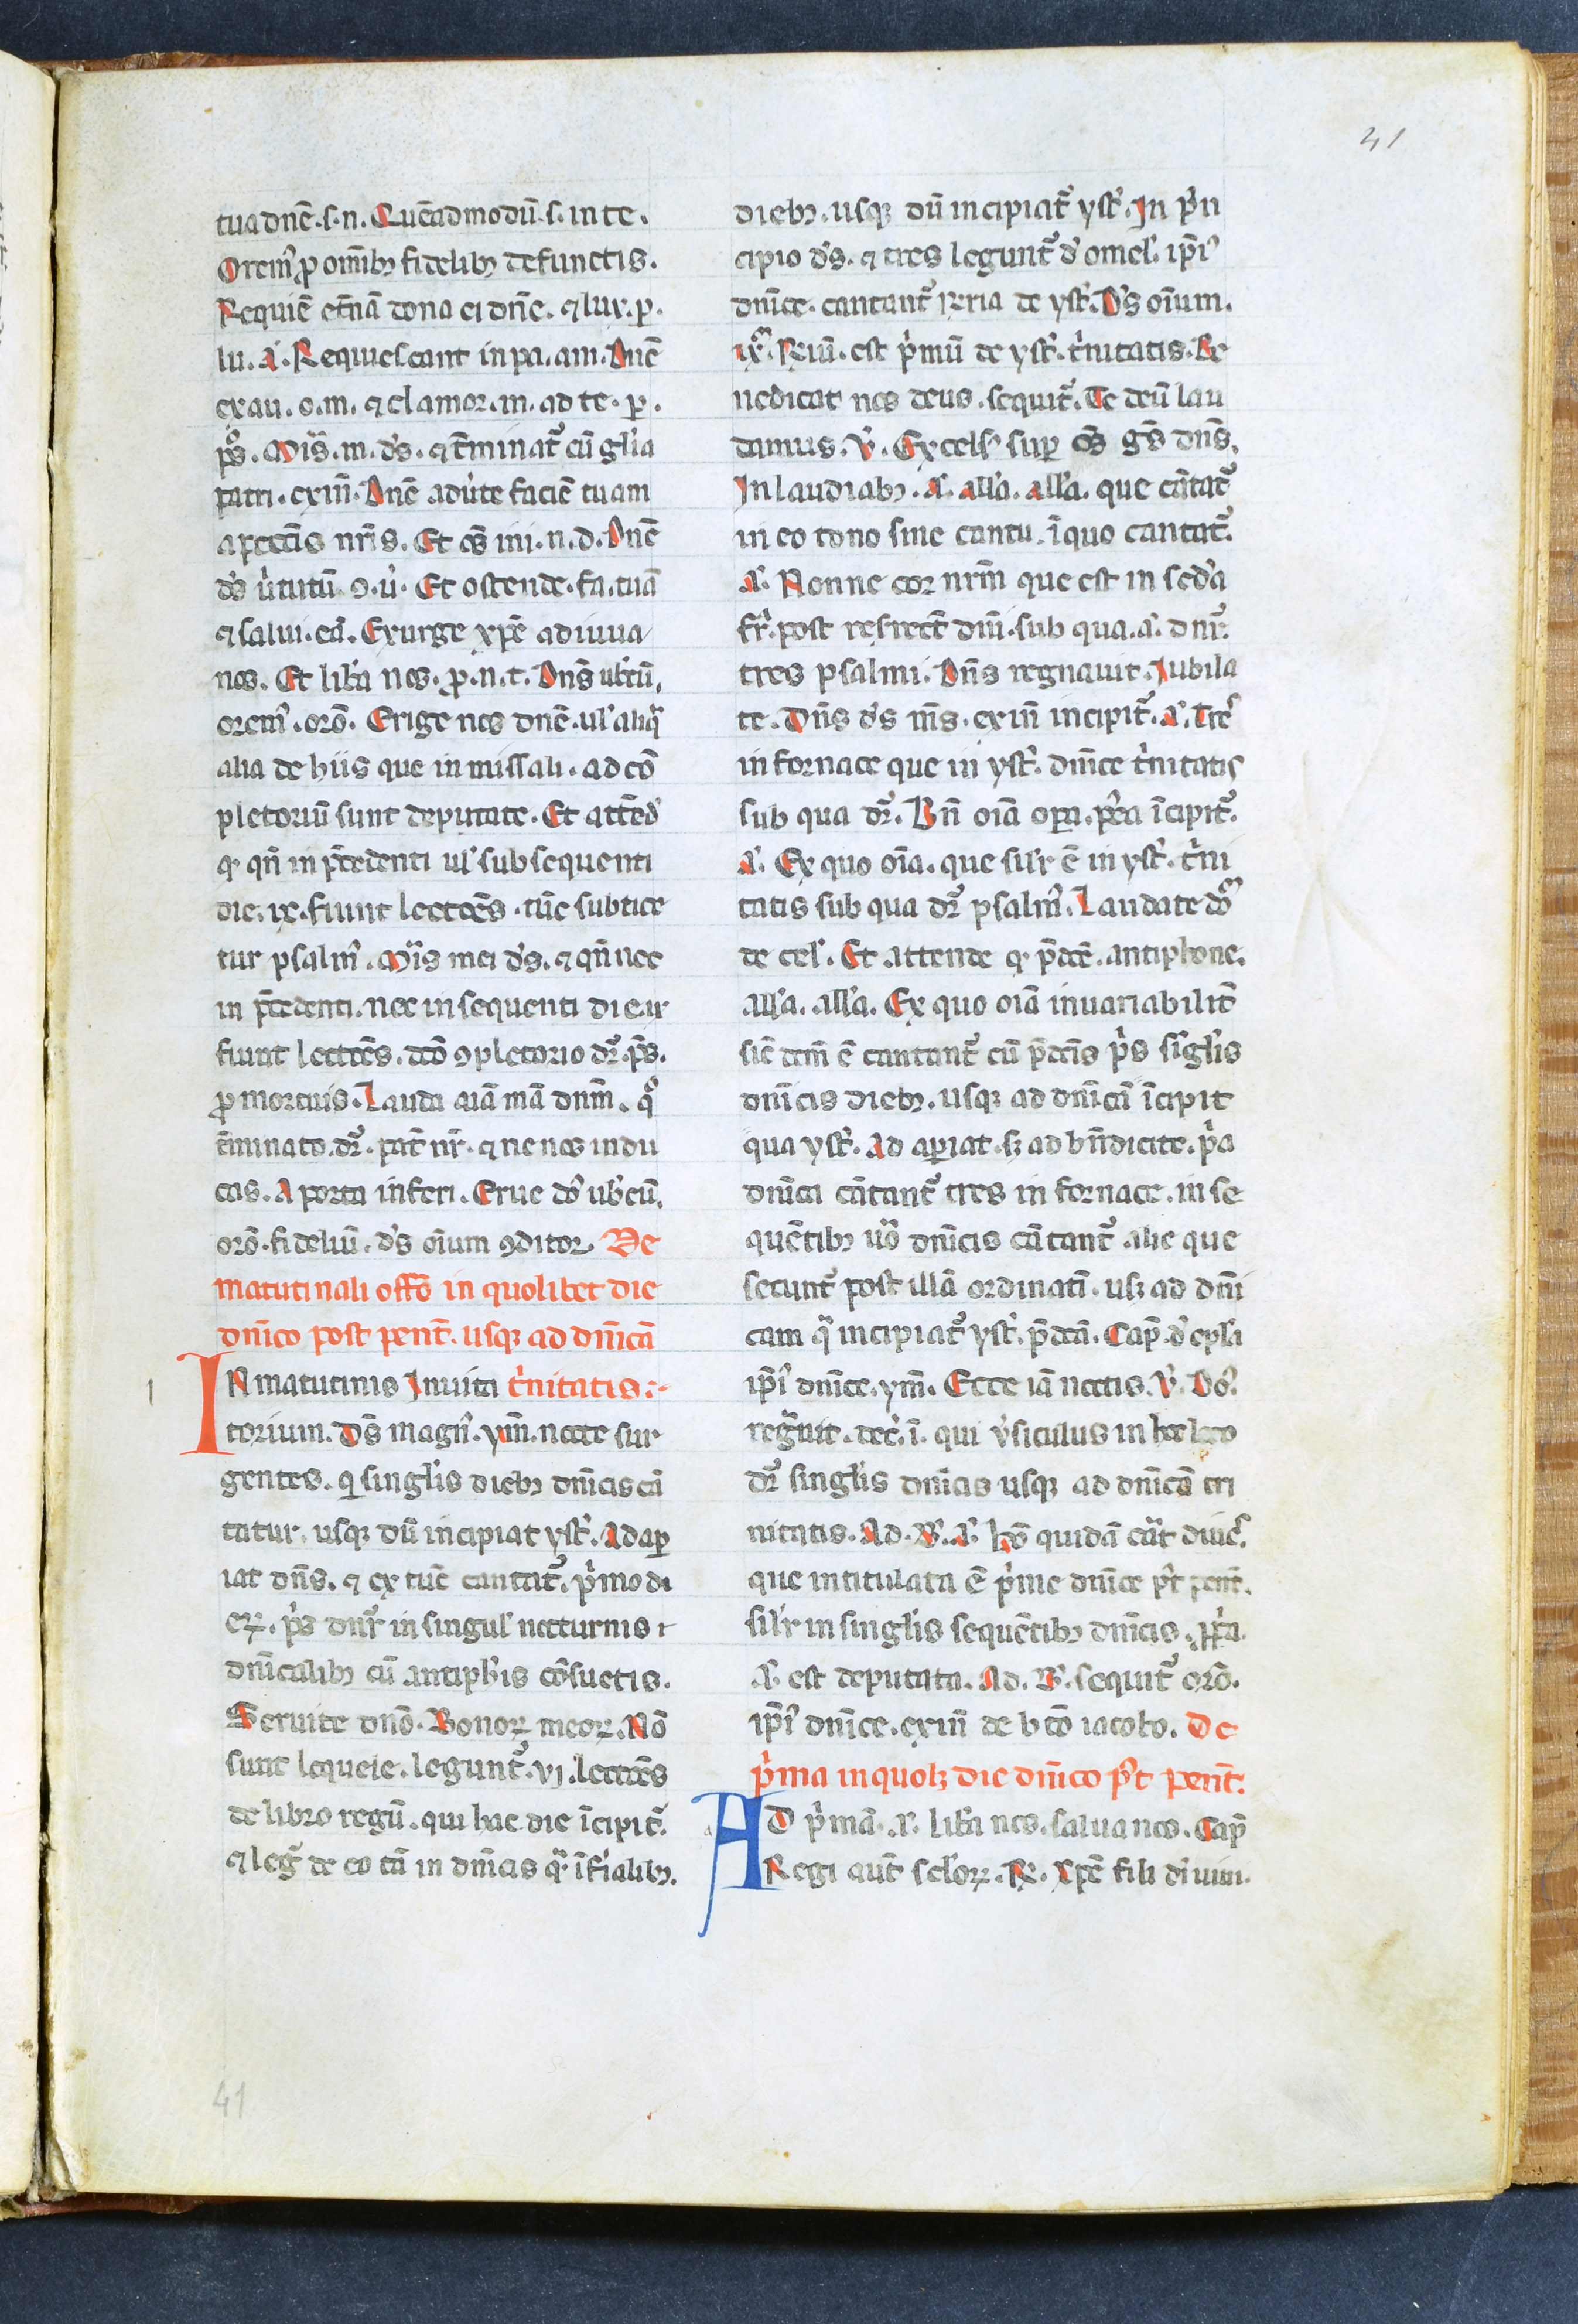 41
tua dnē. s. n. Quēadmodū. s. in te.
Orem⁹ ꝓ omīb⁹ fidelib⁹ defunctis.
Requiē et̄nā dona ei dn̄e. ⁊ lux. ꝑ.
lu. A᷒. Requiescant in pa. am. Dnē
exau. o. m. ⁊ clamor. m. ad te. ꝑ.
p̄s. Mis̄. m. d̄s. ⁊ t̄minat᷒ cū gl̓ia
patri. exin̄. Dnē adu̓te faciē tuam
a pcc̄is nr̄is. Et om̄s ini. n. d. Dnē
d̄s u̓tutū. ꝯ. u̓. Et ostende. fa. tuā
⁊ salui. eri᷒. Exurge xp̄e adiuua
nos. Et lib̓a nos. ꝓ. n. t. Dn̄s ub̓cū.
orem⁹. orō. Erige nos dnē. ul̓ aliq̄
alia de hiis que in missali. ad cō
pletoriū sunt deputate. Et attēd̓
ꝙ qn̄ in p̄cedenti ul̓ subsequenti
die. ix. fiunt lectōēs. tūc subtice
tur psalm᷒. Mis̄ mei d̄s. ⁊ qn̄ nec
in p̄cedenti. nec in sequenti die ix
fiunt lectōēs. dc̄o ꝯpletorio dr̄. p̄s.
ꝓ mortuis. Lauda aīa mā dnm̄. q̊
t̄minato. dr̄. pat̄ nr̄. ⁊ ne nos indu
cas. A porta inferi. Erue do᷒ ub̓cū.
orō. fideliū. d̄s oīum ꝯditor. De
matutinali offō in quolibet die
dn̄ico post pent̄. usqꝫ ad dn̄icā
IN matutinis Inuita t̓nitatis :-
torium. Ds̄ magn᷒. ym̄. nocte sur
gentes. q̄ singl̓is dieb⁹ dn̄icis cā
tatur. usqꝫ dū incipiat yst᷒. Adaꝑ
iat dn̄s. ⁊ ex tūc cantat᷒. p̓mo di
eꝝ. p̄s dn̄r in singul̓ nocturnis
dn̄icalib⁹ cū antiph̓is cōsuetis.
Seruite dn̄o. Bonoꝝ meoꝝ. Nō
sunt loquele. legunt᷒. vi. lectōēs
de libro regū. qui hac die īcipit᷒.
⁊ leg᷒ de eo tā in dn̄icis q̄ in f̓ialib⁹.
dieb⁹. usqꝫ dū incipiat᷒ yst᷒. In p̓n
cipio d̄s. ⁊ tres legunt᷒ d̓ omel᷒. ip̄i⁹
dn̄ice. cantant᷒ ꝶria de yst᷒. Ds̄ oīum.
ix᷒. ꝶiū. est p̓mū de yst᷒. t̓nitatis. Be
nedicat nos deus. sequit᷒. Te deū lau
damus. V̓. Excels⁹ suꝑ om̄s gēs dn̄s.
In laudiab⁹. A᷒. all̓a. all̓a. que cātat᷒
in eo tono sine cantu. ī quo cantat᷒.
A᷒. Nonne cor nrm̄ que est in sed̓a
fr̓. post resrect᷒ dn̄i. sub qua. a᷒. dn̄r.
tres psalmi. Dn̄s regnauit. Iubila
te. Dn̄s d̄s m̄s. exin̄ incipit᷒. A᷒. Tres᷒
in fornace que in yst᷒. dn̄ice t̓nitatis
sub qua dr̄. Bn̄ oīa oꝑa. p̓ea īcipit᷒.
A᷒. Ex quo oīa. que sil̓r ē in yst᷒. t̓ni
tatis sub qua dr̄ psalm᷒. Laudate do᷒
de cel᷒. Et attende ꝙ p̄dc̄e. antiphone.
all̓a. all̓a. Ex quo oīa inuariabilit̄
sic̄ dem̄ ē cantant᷒ cū p̄dc̄is p̄s sīgl̓is
dn̄icis dieb⁹. usqꝫ ad dn̄icā īcipit
qua yst᷒. Ad aꝑiat. sꝫ ad bn̄dicite. p̓a
dn̄ica cātant᷒ tres in fornace. in se
quētib⁹ uo᷒ dn̄icis cātant᷒ alie que
secunt᷒ post illā ordinatī. usꝫ ad dn̄i
cam q̄ incipiat᷒ yst᷒. p̄dc̄ā. Cap̄. d̓ epl̓a
ip̄i⁹ dn̄ice. ym̄. Ecce iā noctis. V̓. Do᷒.
regn̄uit. dec᷒. ī. qui v̓siculus in hoc loco
dr̄ singl̓is dn̄icis usqꝫ ad dn̄icā tri
nitatis. Ad. B᷒. A᷒. hō quidā erāt diues᷒.
que intitulata ē p̓me dn̄ice p᷒t pent̄.
sil̓r in singl̓is sequētib⁹ dn̄icis. ꝓp̓a.
A᷒. est deputata. Ad. B᷒. sequit᷒ orō.
ip̄i⁹ dn̄ice. exin̄ de b̄to iacobo. De
p̓ma in quolꝫ die dn̄ico p᷒t pent̄.
AD p̓mā. A᷒. lib̓a nos. salua nos. Cap̄
Regi aut̄ scl̓oꝝ. ℟. Xp̄e fili dī uiui.
41